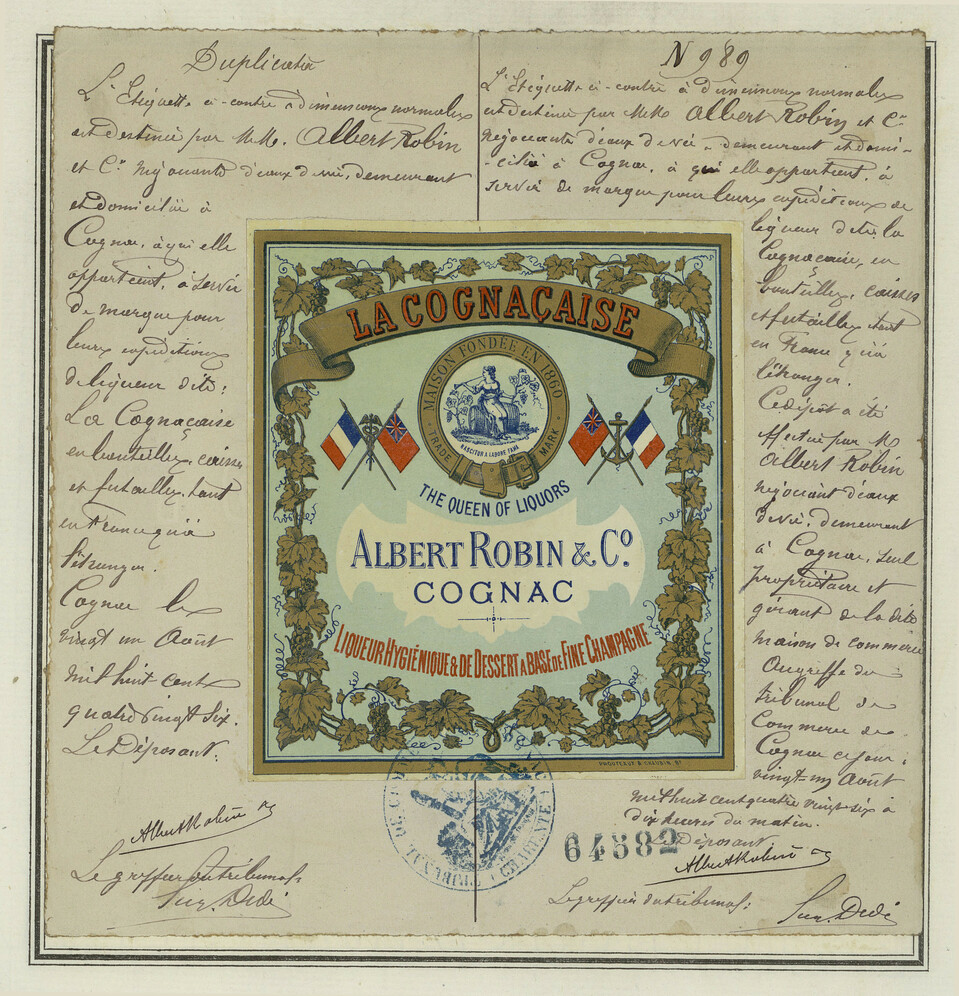 Duplicata
L'Etiquette ci-contre a dimensions normales
est destinée par M.M. Albert Robin
et Cie Négociants d'eaux de vie, demeurant
et domiciliés à
Cognac, à qui elle
appartient, à servir
de marque pour
leurs expéditions
de liqueur dite:
La Cognaçaise
en bouteilles, caisses
et futailles, tant
en France qu'à
l'étranger.
Cognac le
vingt un Août
mil huit cent
quatre vingt six.
Le Déposant.
Albert Robin
Le greffier du tribunal
N 989
L'Etiquette ci-contre à dimensions normales
est destinée par M.M. Albert Robin et Cie
négociants d'eaux de vie, demeurant et domi-
-ciliés à Cognac, à qui elle appartient, à
servir de marque pour leurs expéditions de
liqueur dite: la
Cognaçaise, en
bouteilles, caisses
et futailles tant
en France qu'à
l'étranger.
Ce dépôt a été
effectué par M
Albert Robin
négociant d'eaux
de vie, demeurant
à Cognac, seul
propriétaire et
gérant de la dite
maison de commerce
Au greffe du
tribunal de
Commerce de
Cognac ce jour:
vingt-un Août
mil huit cent quatre vingt-six à
dix heures du matin.
Le Déposant
Albert Robin
Le greffier du tribunal:
LA COGNAÇAISE
MAISON FONDÉE EN 1860
TRADE MARK
NASCITUR A LABORE FAMA
THE QUEEN OF LIQUORS
ALBERT ROBIN & Co.
COGNAC
LIQUEUR HYGIÉNIQUE & DE DESSERT A BASE DE FINE CHAMPAGNE
TRIBUNAL DE COGNAC (CHARENTE)
64582